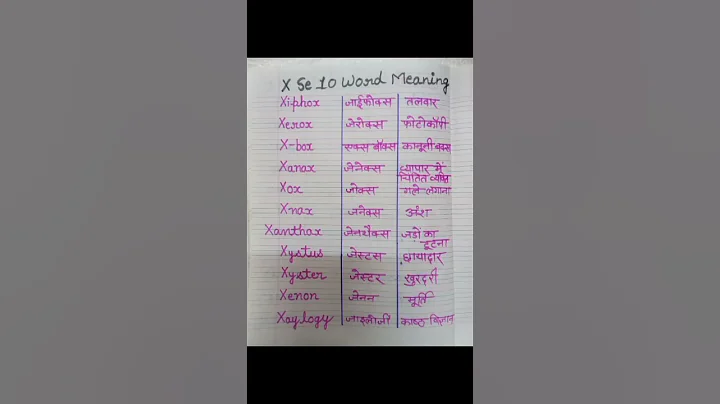 X Se 10 Word Meaning
Xiphox जाईफोक्स तलवार
Xerox जेरोक्स फोटोकॉपी
X-box एक्स बॉक्स कानूनी बक्स
Xanax जेनेक्स व्यापार में चिंतित व्यक्ति
Xox जोक्स गले लगाना
Xnax जनेक्स अंश
Xanthax जेनथैक्स जड़ों का टूटना
Xystus जेस्टस छायादार
Xyster जेस्टर खुरदरी
Xenon जेनन मूर्ति
Xaylogy जाइलोजी काष्ठ विज्ञान